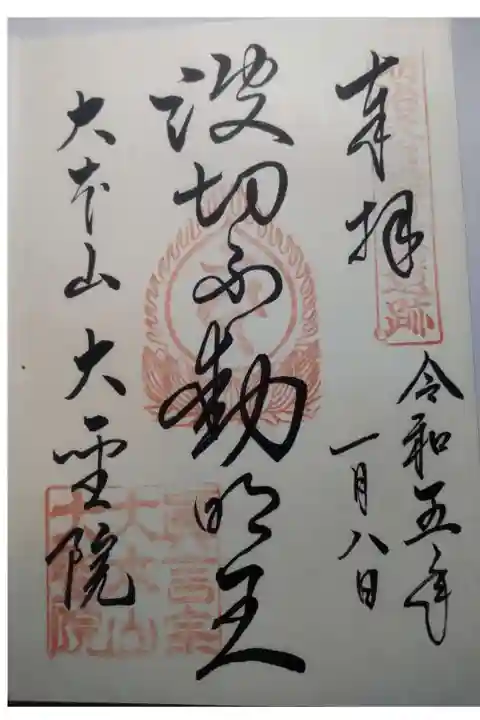 奉拝
令和五年
一月八日
波切不動明王
大本山 大聖院
真言宗
大本山
大聖院